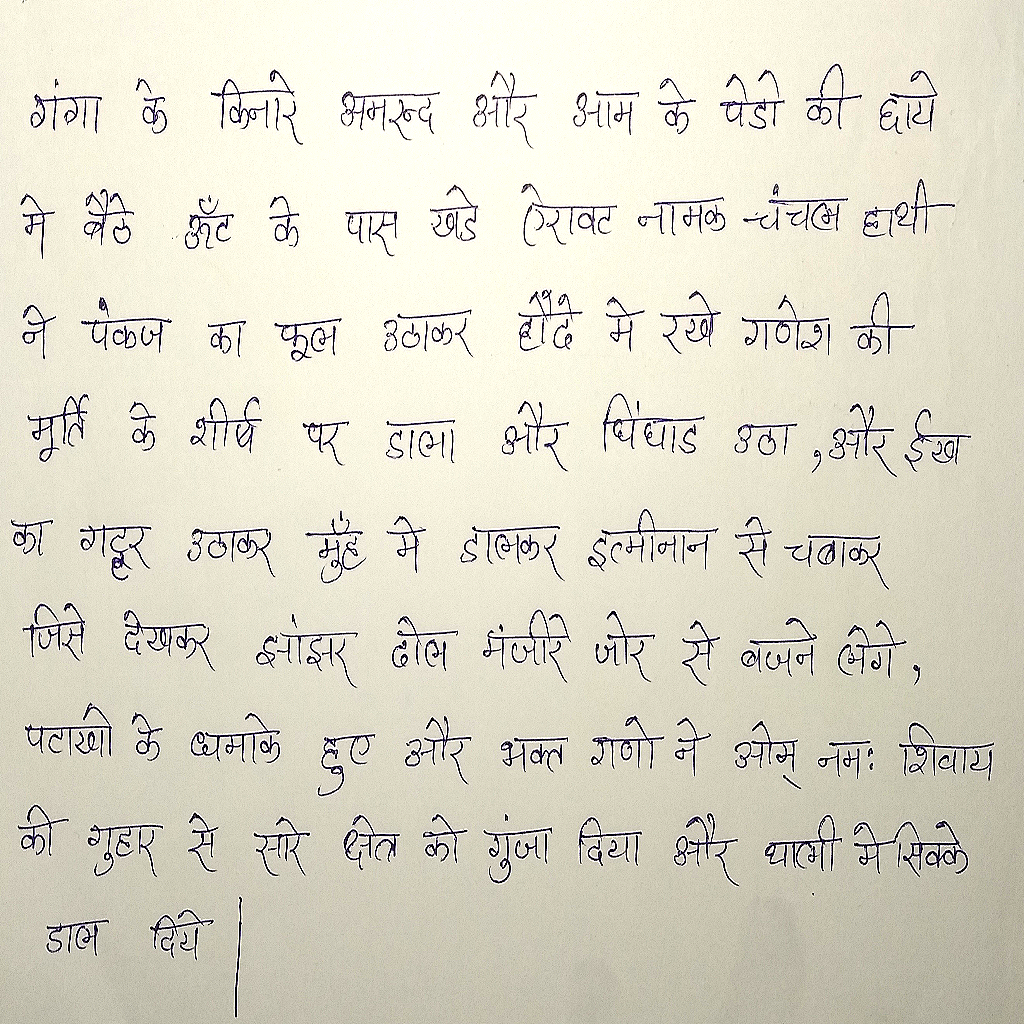 गंगा के किनारे अमरुद और आम के पेडो की छाये
मे बैठे ऊँट के पास खडे ऐरावट नामक चंचल हाथी
ने पंकज का फूल उठाकर हौदे मे रखे गणेश की
मूर्ति के शीर्ष पर डाला और चिंघाड उठा , और ईख
का गट्ठर उठाकर मुँह मे डालकर इत्मीनान से चबाकर
जिसे देखकर झांझर ढोल मंजीरे जोर से बजने लगे ,
पटाखो के धमाके हुए और भक्त गणो ने ओम् नमः शिवाय
की गुहार से सारे क्षेत्र को गुंजा दिया और थाली मे सिक्के
डाल दिये |